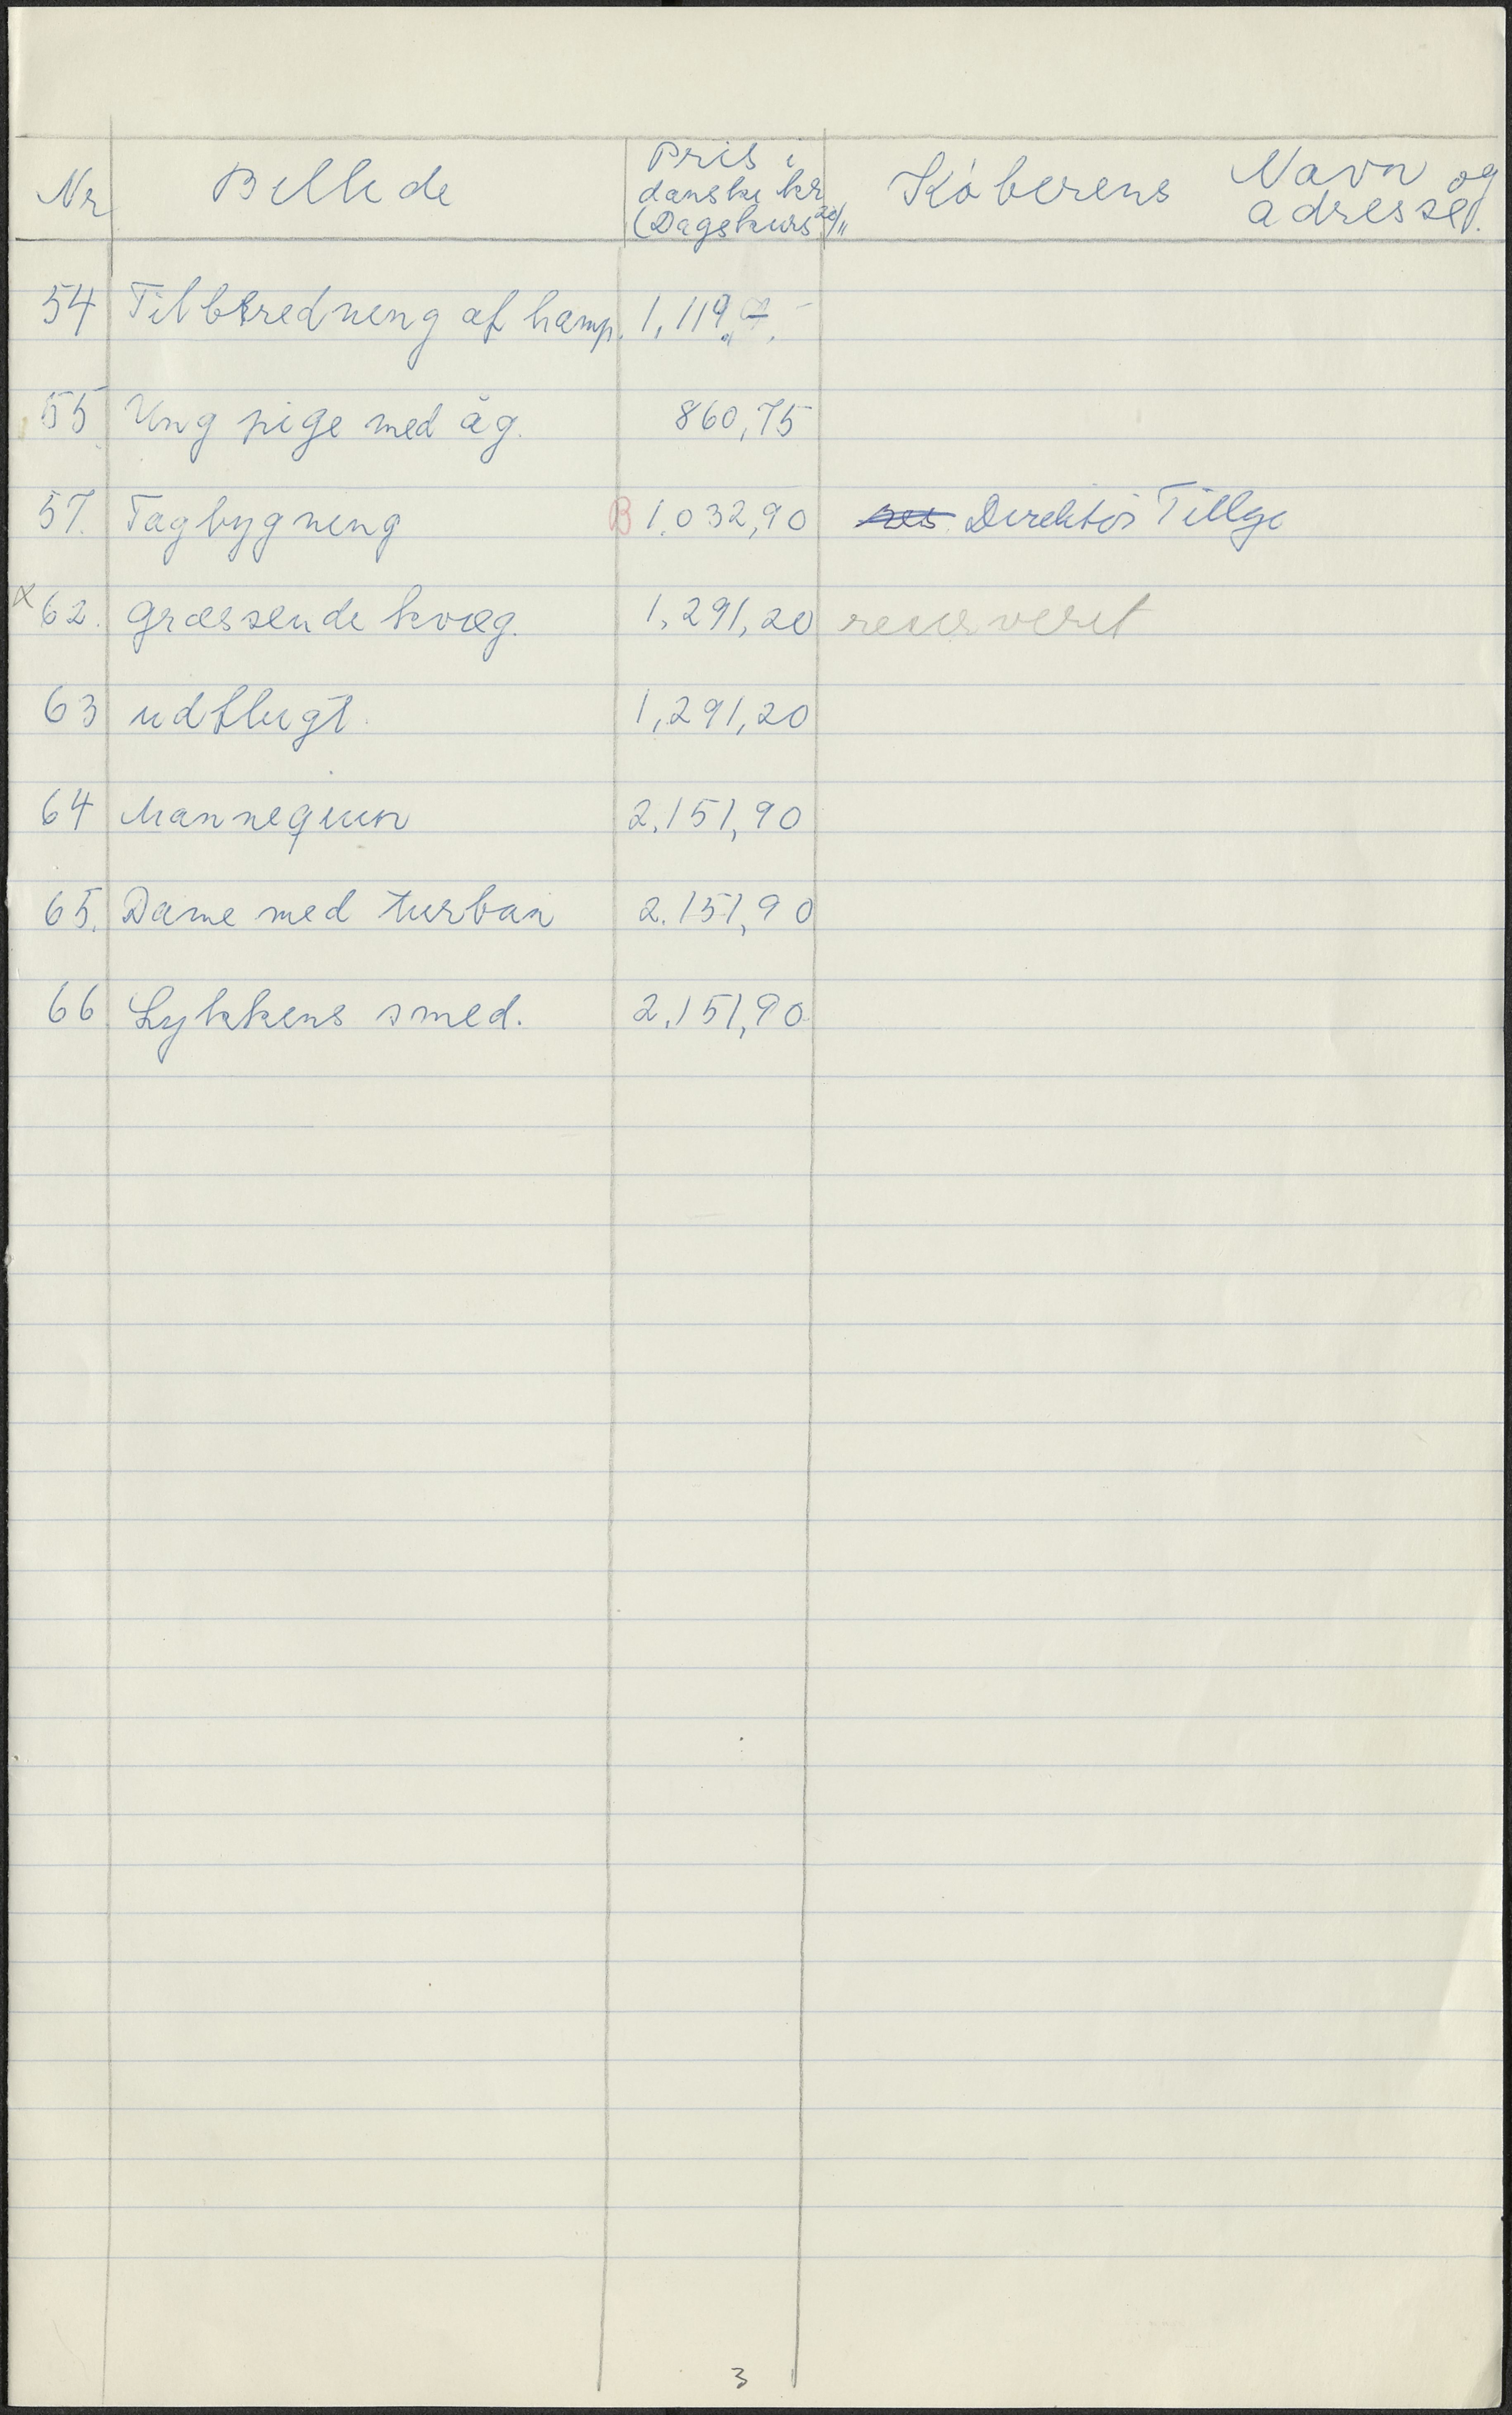 Nr Billede Pris i danske kr (Dagskurs 20/11 Køberens Navn og adresse.
54 Tilberedning af hamp. 1,119,
55 Ung pige med åg. 860,75
57. Tagbygning B 1.032,90 res. Direktör Tillge
x 62. græssende kvæg. 1,291,20 reserveret
63 udflugt. 1,291,20
64 Mannequin 2.151,90
65. Dame med turban 2.151,90
66 Lykkens smed. 2.151,90
3